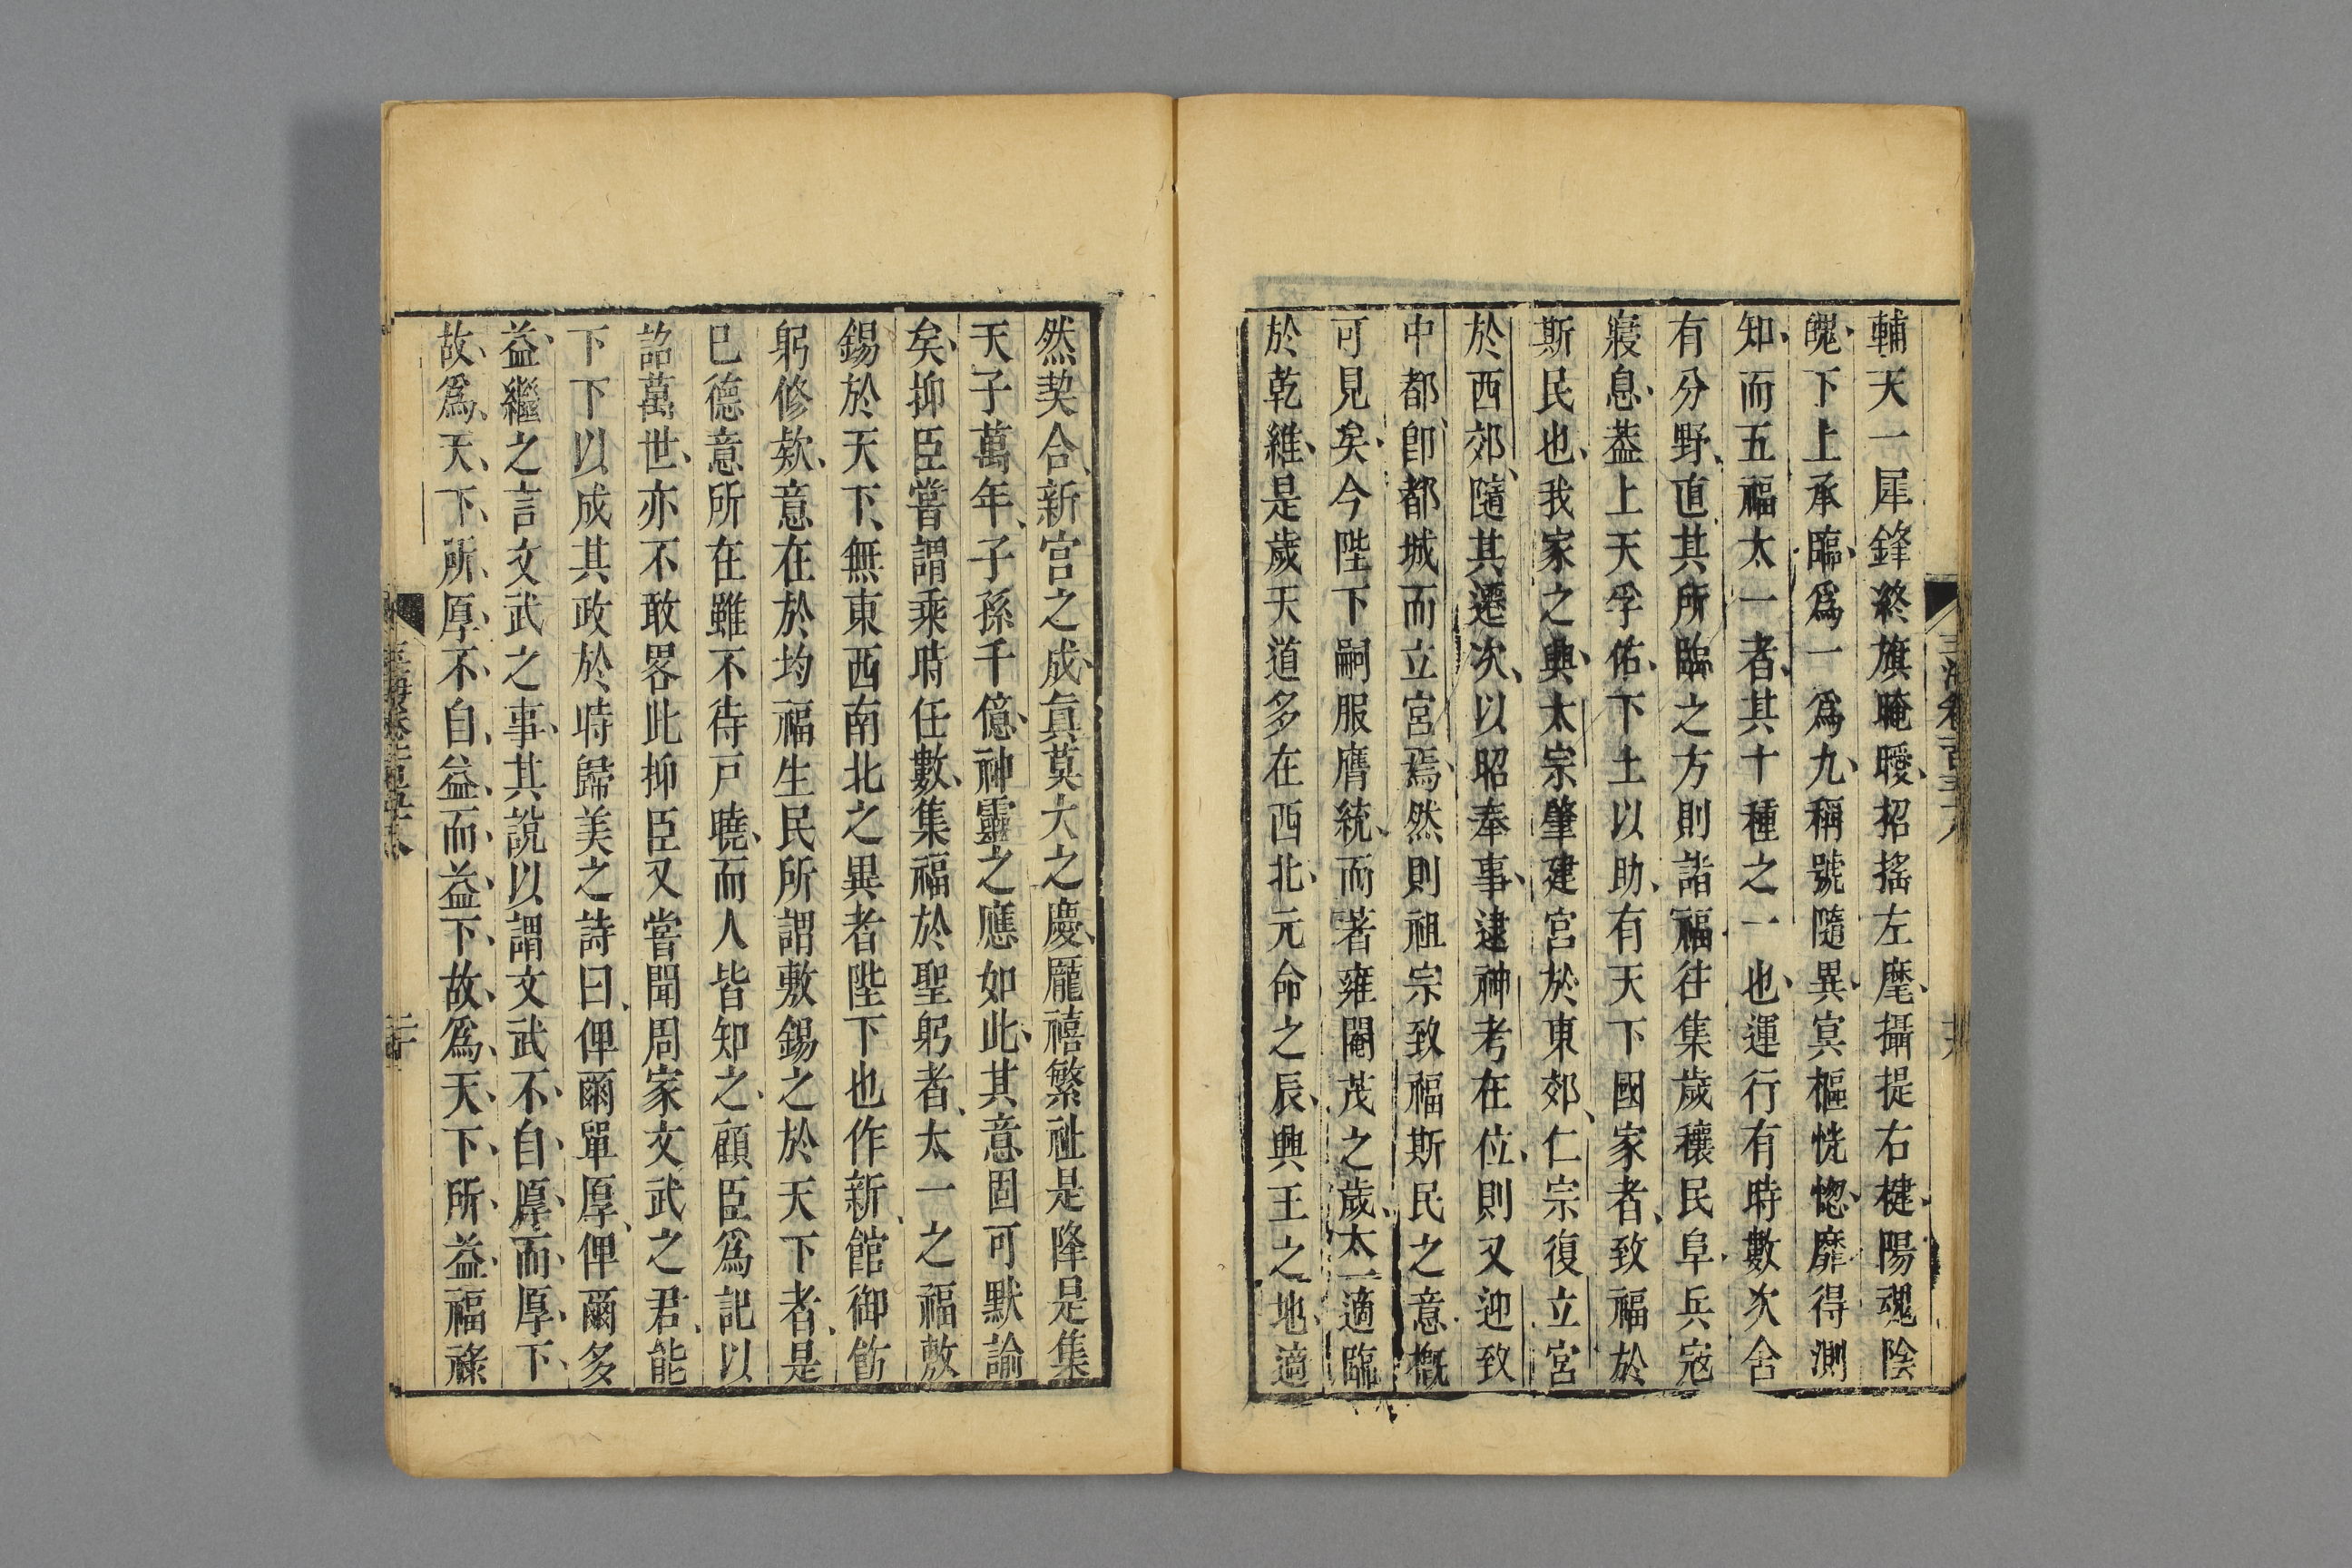 輔天一犀鋒終旗晻曖招搖左麾攝提右楗陽魂陰
魄下上承臨爲一爲九稱號隨異冥樞恍惚靡得測
知而五福太一者其十種之一也運行有時數次舍
有分野直其所臨之方則諧福往集歲穰民阜兵寇
寢息葢上天孚佑下土以助有天下國家者致福於
斯民也我家之典太宗肇建宮於東郊仁宗復立宮
於西郊隨其遷次以昭奉事逮神考在位則又迎致
中都卽都城而立宮焉然則祖宗致福斯民之意槪
可見矣今陛下嗣服膺統而著雍閹茂之歲太一適臨
於乾維是歲天道多在西北元命之辰興王之地適
然契合新宮之成眞莫大之慶厖禧繁祉是降是集
天子萬年子孫千億神靈之應如此其意固可默諭
矣抑臣嘗謂乘時任數集福於聖躬者太一之福敷
錫於天下無東西南北之異者陛下也作新館御飭
躬修欵意在於均福生民所謂敷錫之於天下者是
已德意所在雖不待戸曉而人皆知之顧臣爲記以
詔萬世亦不敢畧此抑臣又嘗聞周家文武之君能
下下以成其政於時歸美之詩曰俾爾單厚俾爾多
益繼之言文武之事其說以謂文武不自厚而厚下
故爲天下所厚不自益而益下故爲天下所益福祿